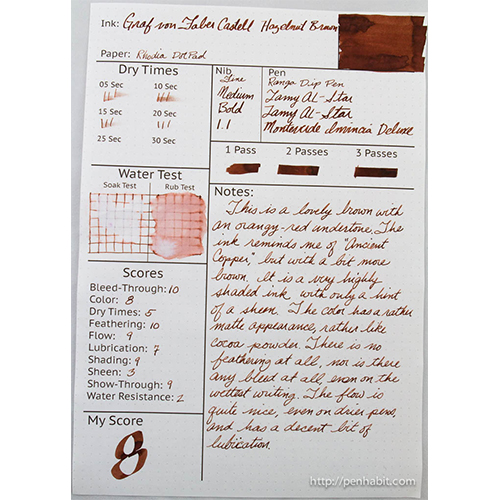 Ink: Graf von Faber Castell Hazelnut Brown
Paper: Rhodia DotPad
Dry Times
05 Sec 10 Sec
15 Sec 20 Sec
25 Sec 30 Sec
Nib Pen
Fine Ranga Dip Pen
Medium Lamy Al-Star
Bold Lamy Al-Star
1.1 Monteverde Invincia Deluxe
1 Pass 2 Passes 3 Passes
Water Test
Soak Test Rub Test
Scores
Bleed-Through: 10
Color: 8
Dry Times: 5
Feathering: 10
Flow: 9
Lubrication: 7
Shading: 9
Sheen: 3
Show-Through: 9
Water Resistance: 2
My Score
8
Notes:
This is a lovely brown with
an orangy-red undertone. The
ink reminds me of "Ancient
Copper," but with a bit more
brown. It is a very highly
shaded ink with only a hint
of a sheen. The color has a rather
matte appearance, rather like
cocoa powder. There is no
feathering at all, nor is there
any bleed at all, even on the
wettest writing. The flow is
quite nice, even on drier pens,
and has a decent bit of
lubrication.
http://penhabit.com